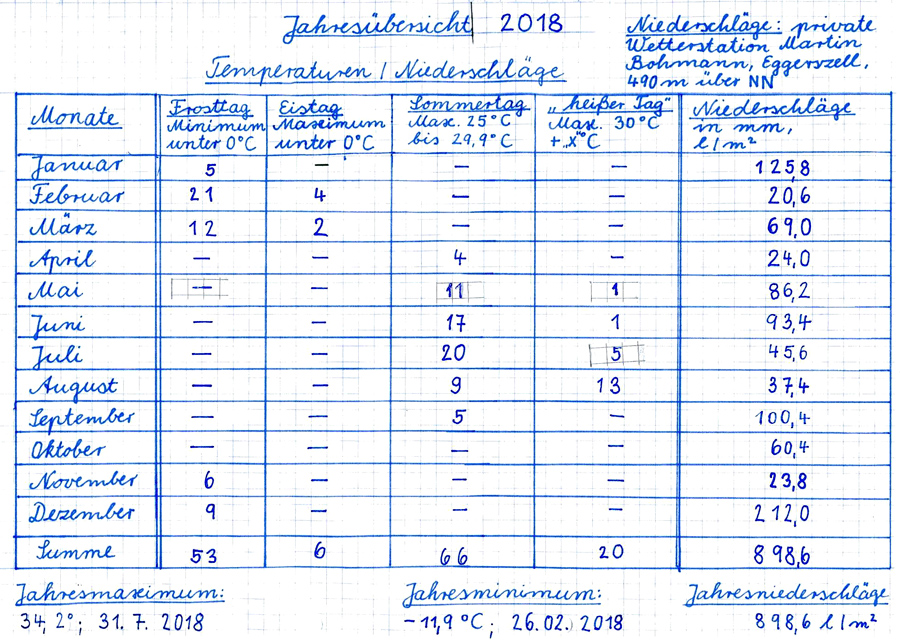 Jahresübersicht 2018
Niederschläge: private
Wetterstation Martin
Bohmann, Eggerszell,
490 m über NN
Temperaturen / Niederschläge
Monate | Frosttag Minimum unter 0°C | Eistag Maximum unter 0°C | Sommertag Max. 25°C bis 29,9°C | „heißer Tag" Max. 30°C + „x"°C | Niederschläge in mm, l/m²
Januar 5 — — — 125,8
Februar 21 4 — — 20,6
März 12 2 — — 69,0
April — — 4 — 24,0
Mai — — 11 1 86,2
Juni — — 17 1 93,4
Juli — — 20 5 45,6
August — — 9 13 37,4
September — — 5 — 100,4
Oktober — — — — 60,4
November 6 — — — 23,8
Dezember 9 — — — 212,0
Summe 53 6 66 20 898,6
Jahresmaximum: Jahresminimum: Jahresniederschläge
34,2°; 31.7.2018 -11,9°C; 26.02.2018 898,6 l/m²